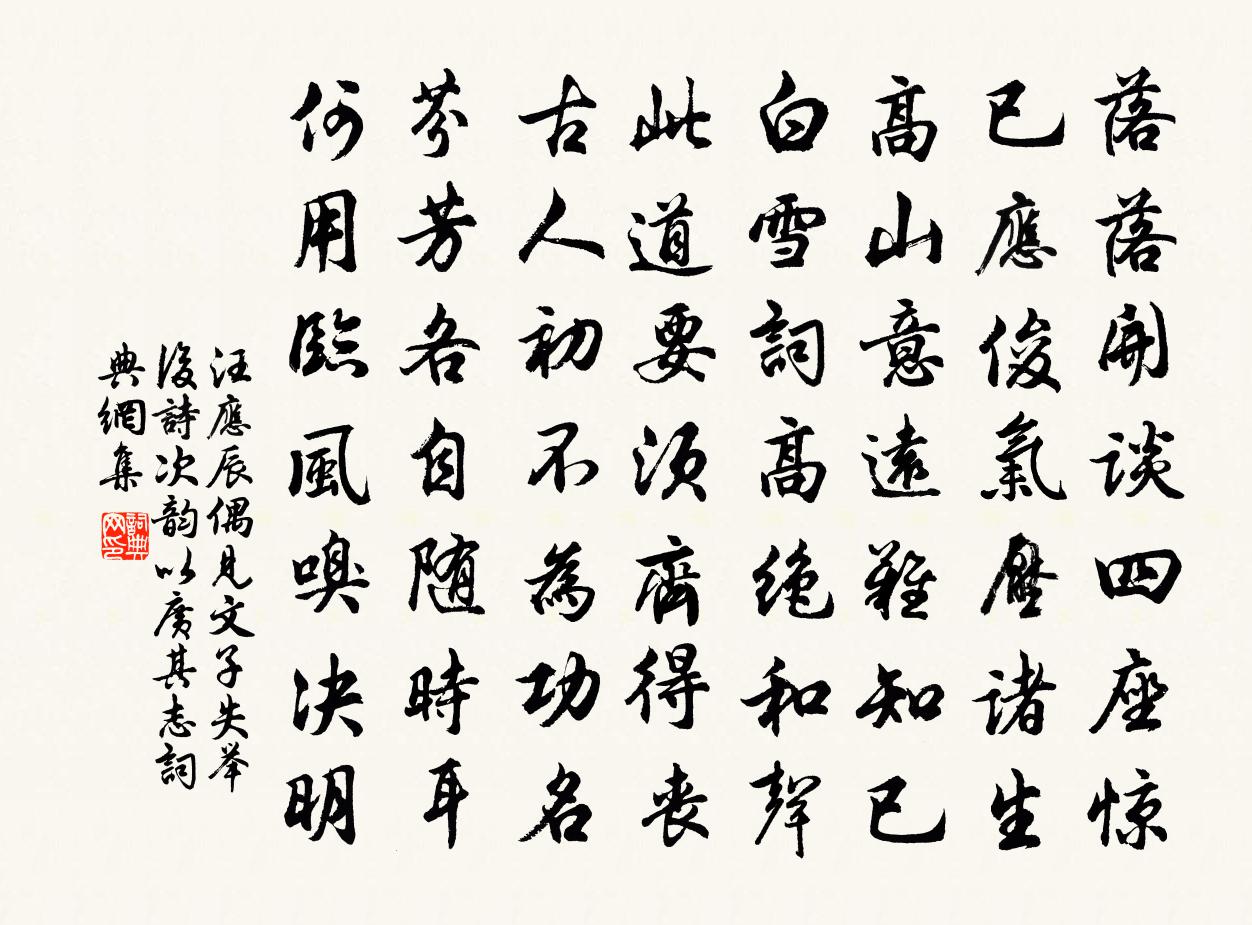 落落開談四座惊
已應俊氣壓諸生
高山意遠難知己
白雪詞高絶和聲
此道要須齊得喪
古人初不為功名
芬芳各自随時耳
何用臨風嗅决明
汪應辰偶見文子失举
後詩次韵以廣其志詞
典網集
詞典
网印